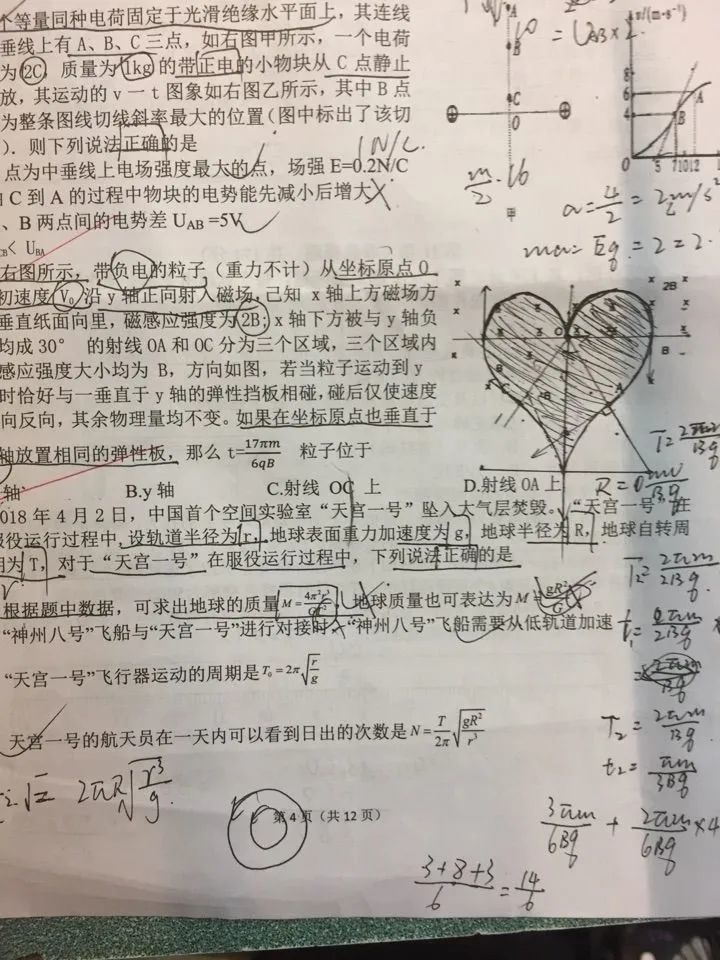 个等量同种电荷固定于光滑绝缘水平面上，其连线
垂线上有 A、B、C 三点，如右图甲所示，一个电荷
为 2C，质量为 1kg 的带正电的小物块从 C 点静止
放，其运动的 v一t 图象如右图乙所示，其中 B 点
为整条图线切线斜率最大的位置（图中标出了该切
）. 则下列说法正确的是
1N/C.
点为中垂线上电场强度最大的点，场强 E=0.2N/C
由 C 到 A 的过程中物块的电势能先减小后增大
、B 两点间的电势差 U_AB =5V
CB< U_BA
A
B
C
O
甲
v/(m·s⁻¹)
8
6
4
2
0
5
7
10
12
B
A
a=4/2=2m/s²
ma=Eq=2=2.
右图所示，带负电的粒子（重力不计）从坐标原点 O
初速度 V₀ 沿 y 轴正向射入磁场，己知 x 轴上方磁场方
垂直纸面向里，磁感应强度为 2B；x 轴下方被与 y 轴负
均成 30° 的射线 OA 和 OC 分为三个区域，三个区域内
感应强度大小均为 B，方向如图，若当粒子运动到 y
时恰好与一垂直于 y 轴的弹性挡板相碰，碰后仅使速度
向反向，其余物理量均不变。如果在坐标原点也垂直于
轴放置相同的弹性板，那么 t=17πm/6qB 粒子位于
轴 B.y 轴 C.射线 OC 上 D.射线 OA 上
2B
B
O
C
B
A
018 年 4 月 2 日，中国首个空间实验室“天宫一号”坠入大气层焚毁。“天宫一号”在
服役运行过程中，设轨道半径为 r，地球表面重力加速度为 g，地球半径为 R，地球自转周
期为 T，对于“天宫一号”在服役运行过程中，下列说法正确的是
根据题中数据，可求出地球的质量 M=4π²r³/GT²，地球质量也可表达为 M=gR²/G
“神州八号”飞船与“天宫一号”进行对接时，“神州八号”飞船需要从低轨道加速
“天宫一号”飞行器运动的周期是 T₀=2π√(r/g)
天宫一号的航天员在一天内可以看到日出的次数是 N=T/2π √(gR²/r³)
T₂=2πm/Bq
t₂=πm/3Bq
3πm/6Bq + 2πm/6Bq ×4
(3+8+3)/6 = 14/6
第 4 页（共 12 页）